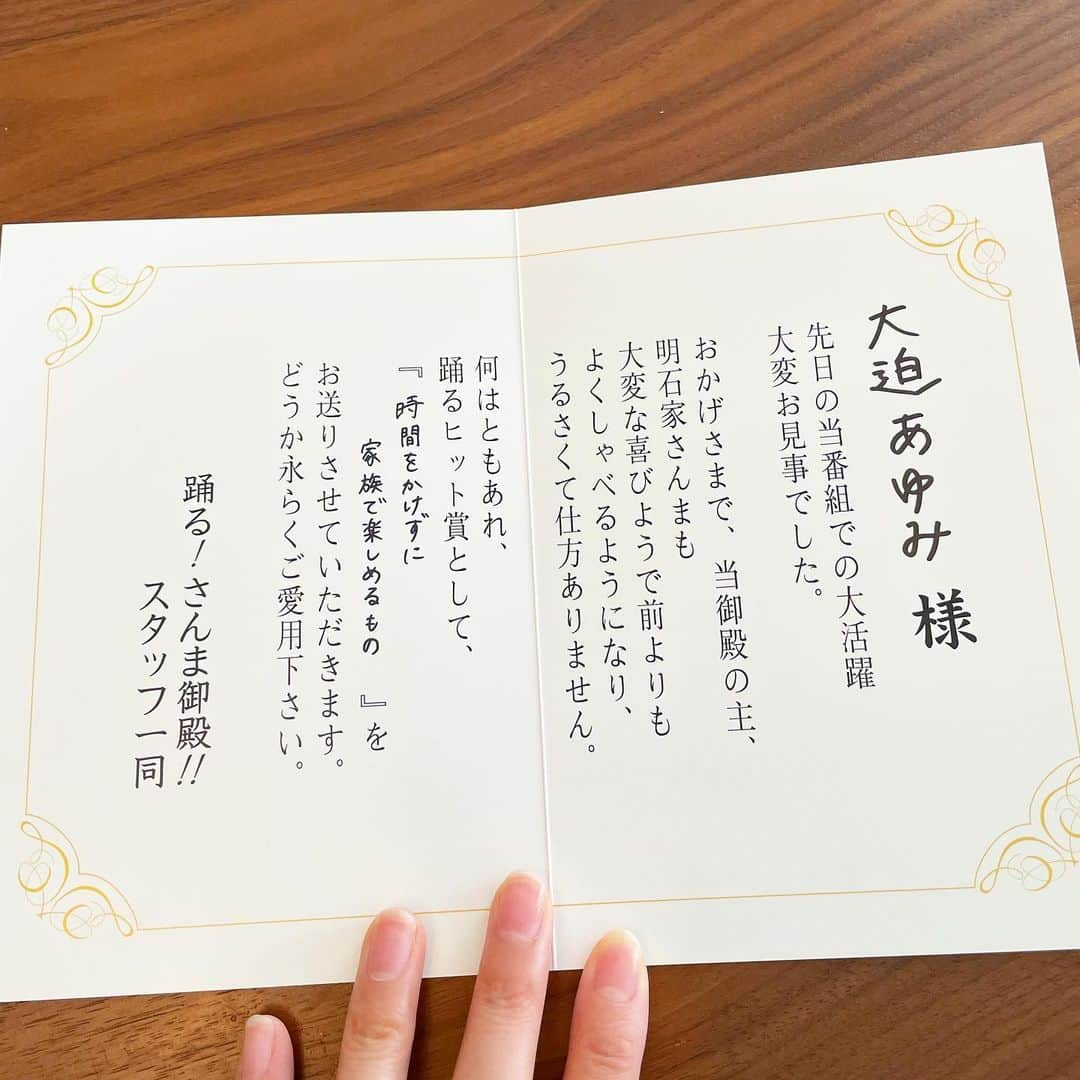 大迫あゆみ様
先日の当番組での大活躍
大変お見事でした。
おかげさまで、当御殿の主、
明石家さんまも
大変な喜びようで前よりも
よくしゃべるようになり、
うるさくて仕方ありません。
何はともあれ、
踊るヒット賞として、
『時間をかけずに
家族で楽しめるもの』を
お送りさせていただきます。
どうか永らくご愛用下さい。
踊る!さんま御殿!!
スタッフ一同